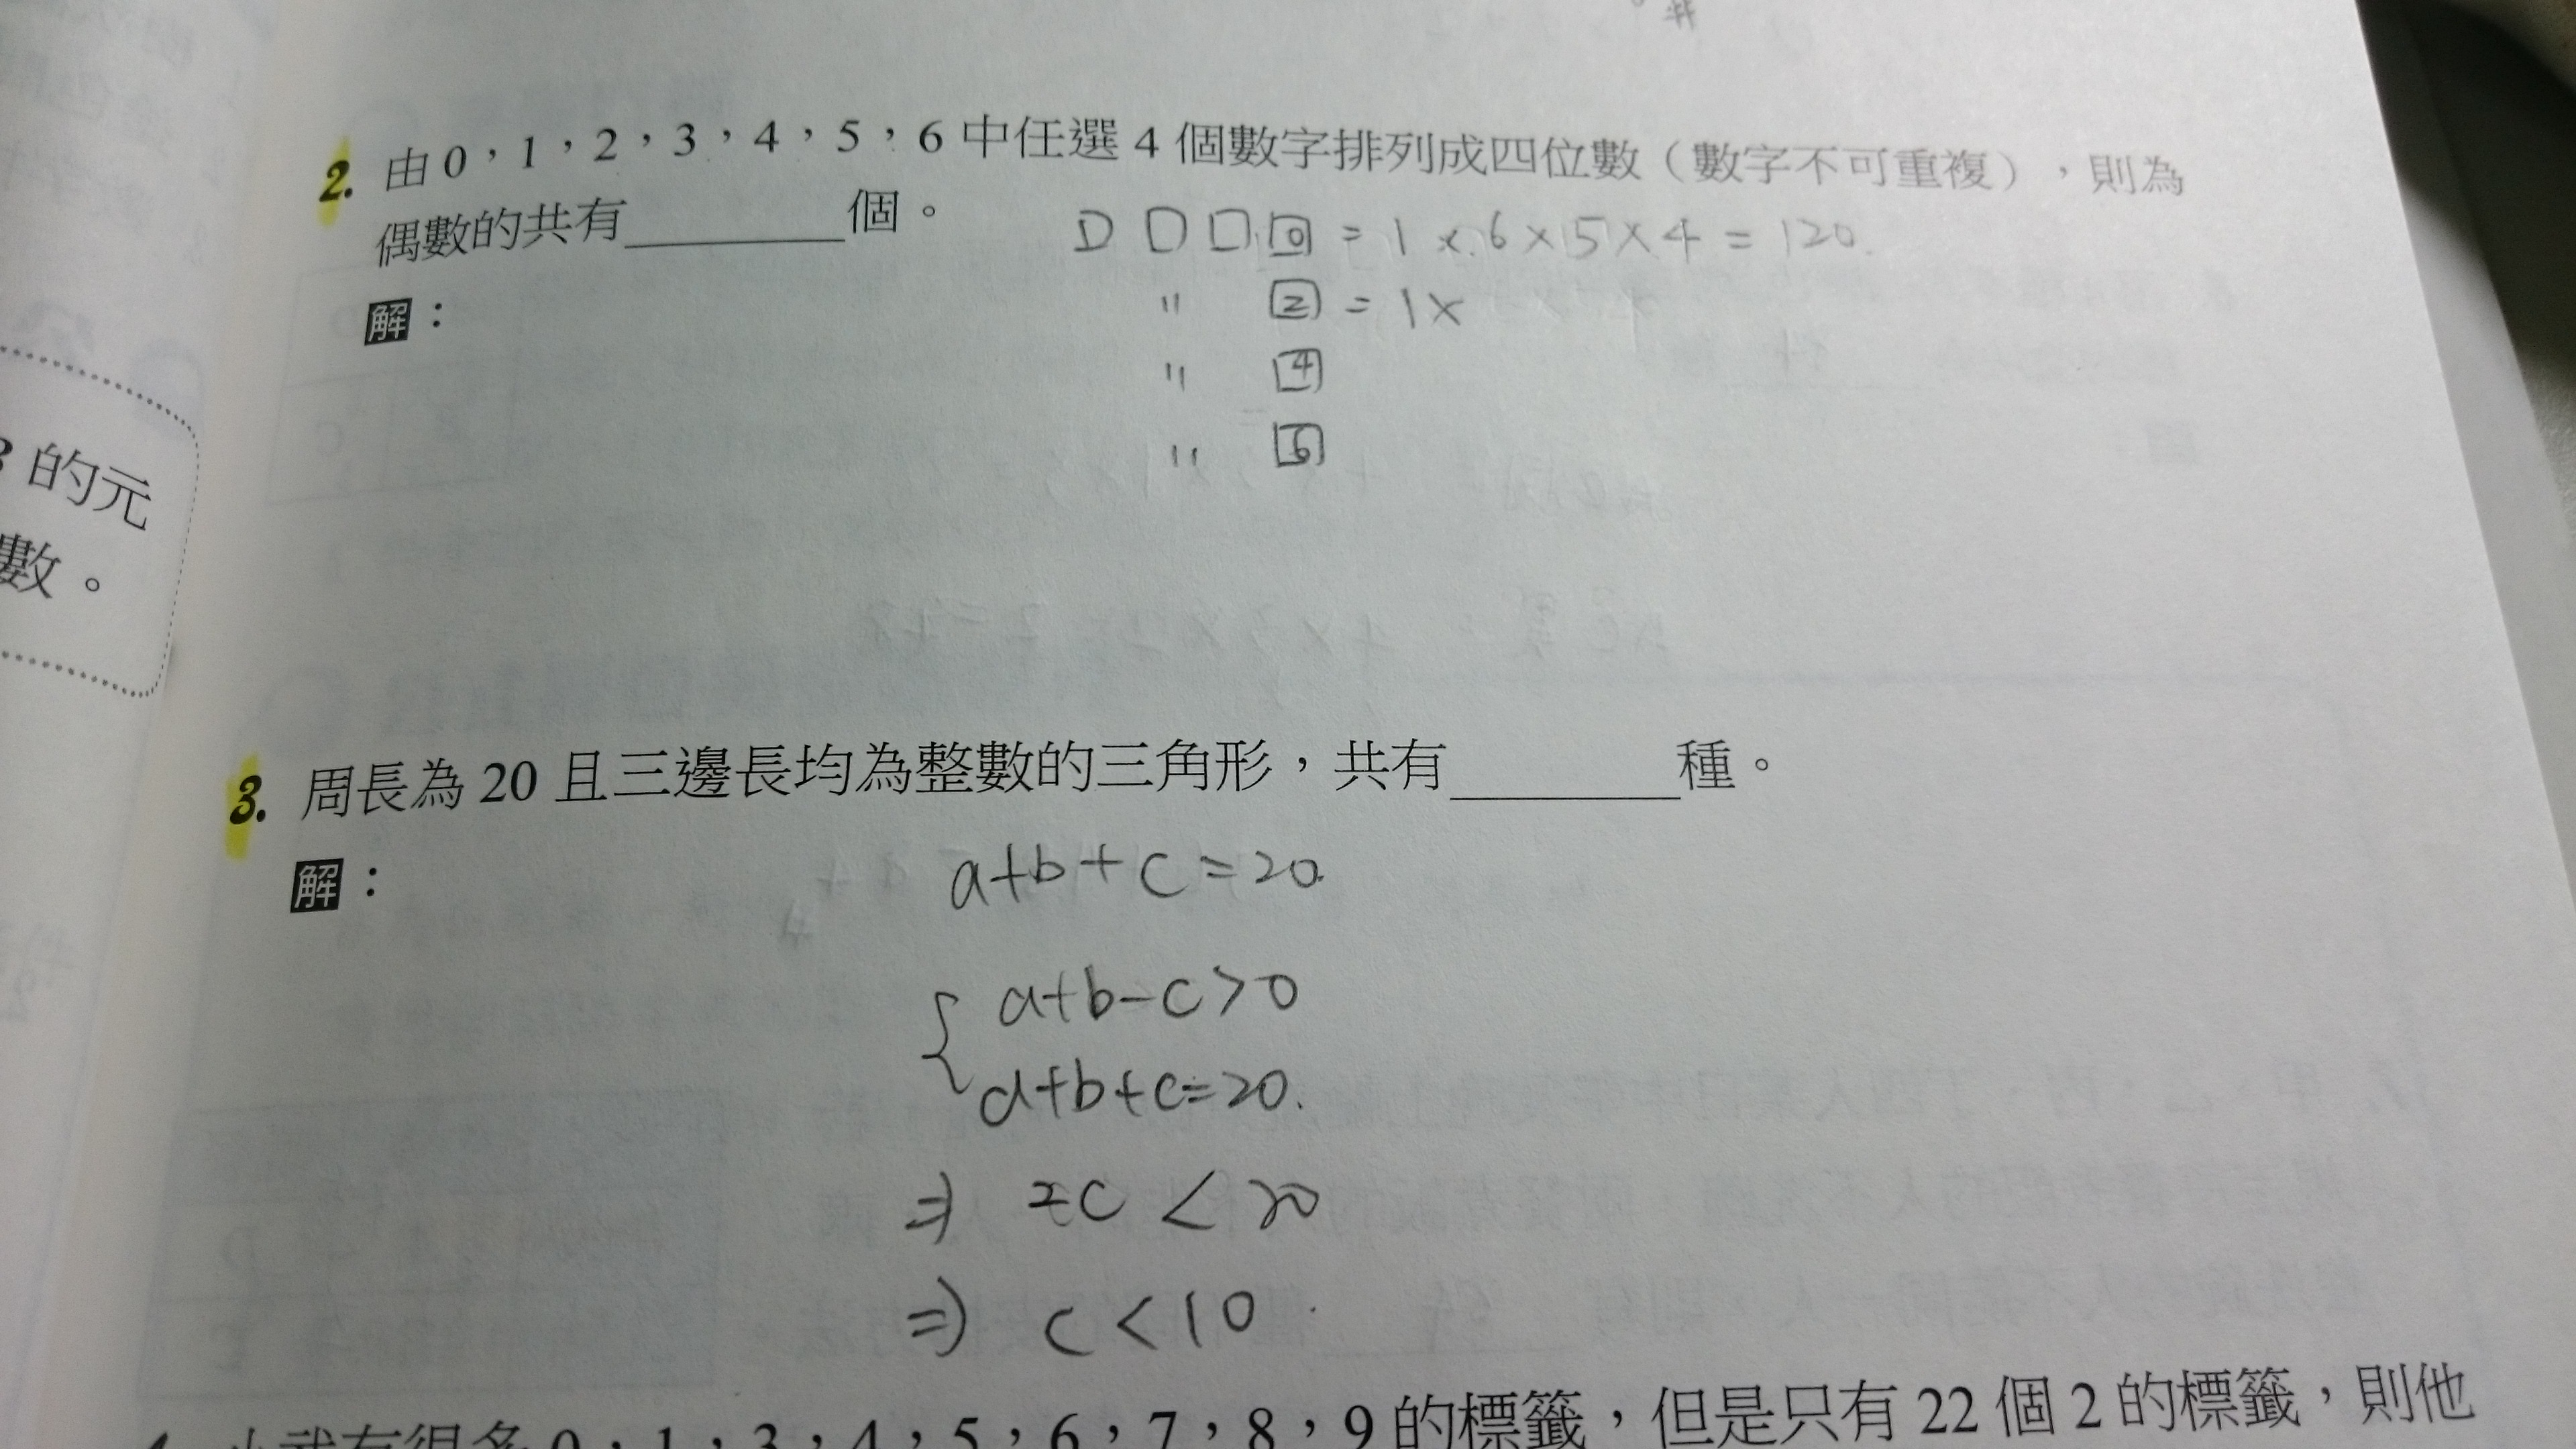 2. 由0,1,2,3,4,5,6中任選4個數字排列成四位數(數字不可重複),則為
偶數的共有________個。
□ □ □ 0 = 1 × 6 × 5 × 4 = 120.
解:
" 2 = 1 ×
" 4
" 6
的元
數。
3. 周長為20且三邊長均為整數的三角形,共有________種。
解:
a+b+c=20.
a+b-c>0
a+b+c=20.
⇒ 2c < 20
⇒ c < 10
0,1,3,4,5,6,7,8,9的標籤,但是只有22個2的標籤,則他